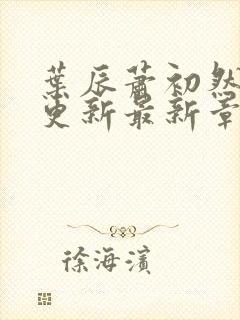 葉辰蕭初然
更新最新章
徐海濱